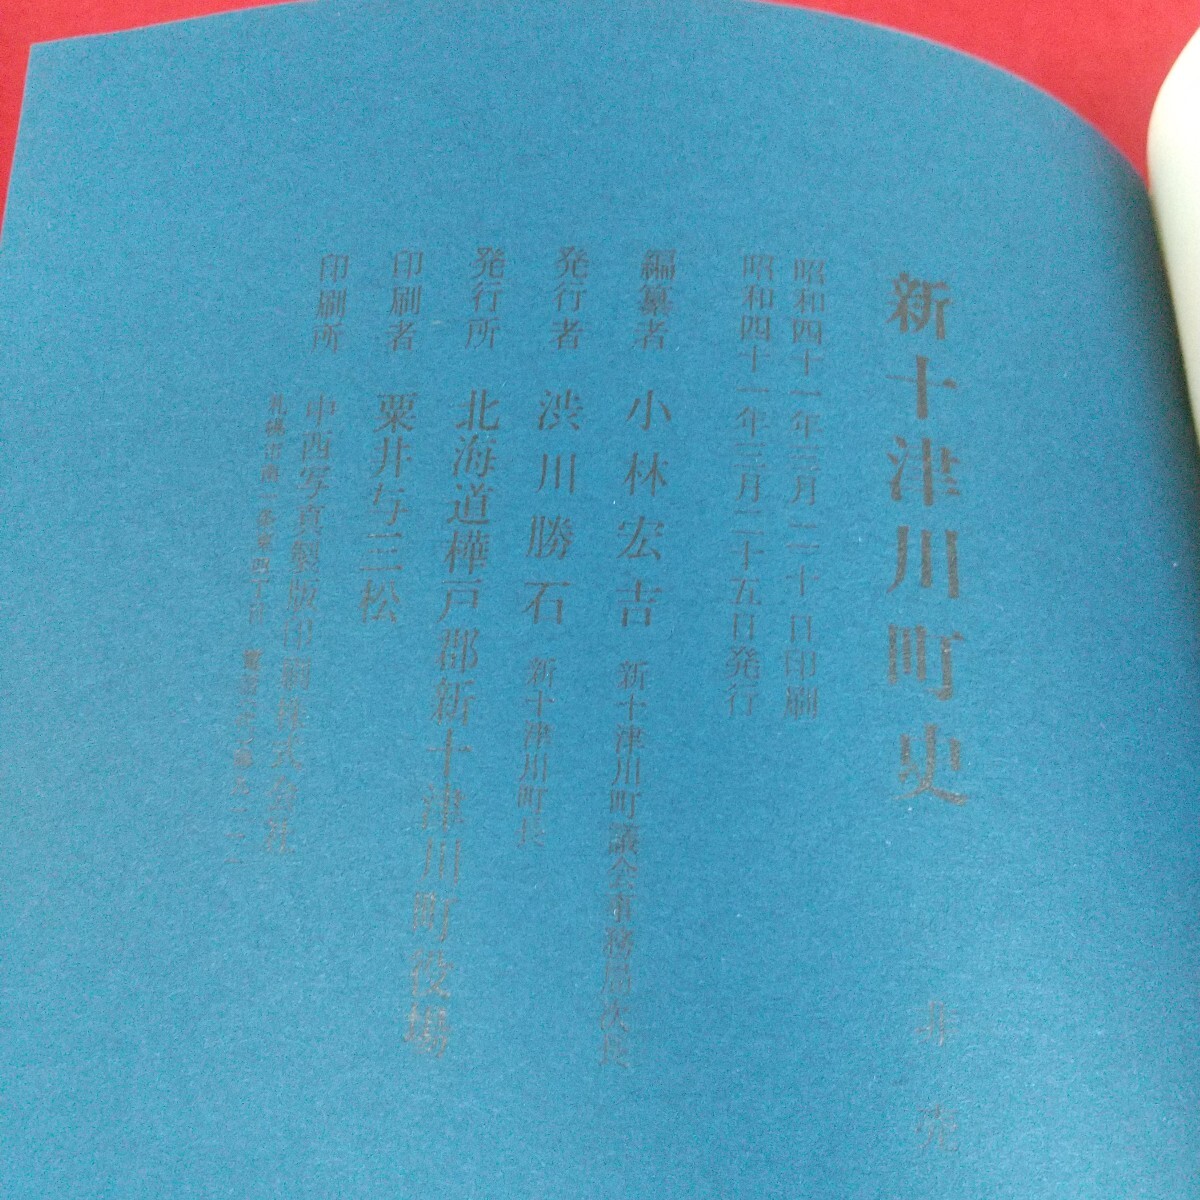 新十津川町史　非売
昭和四十一年三月二十日印刷
昭和四十一年三月二十五日発行
編纂者　小林宏吉　新十津川町議会事務局次長
発行者　渋川勝石　新十津川町長
発行所　北海道樺戸郡新十津川町役場
印刷者　粟井与三松
印刷所　中西写真製版印刷株式会社
札幌市南一条東四丁目